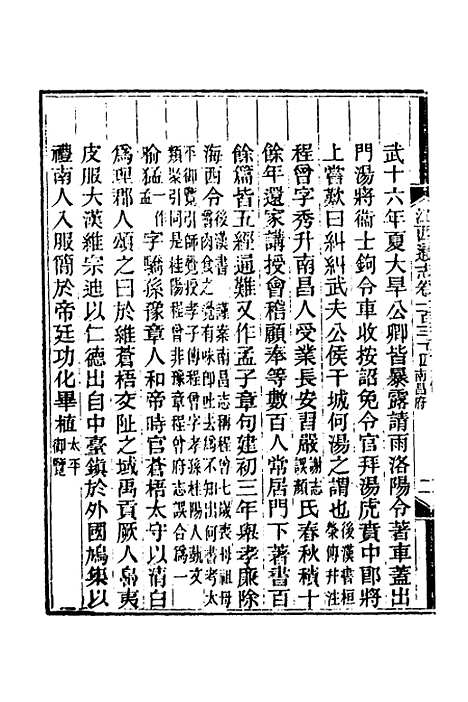 江西通志卷一百三十四 南昌府 二
武十六年夏大旱公卿皆暴露請雨洛陽令著車蓋出
門湯將衞士鉤令車收按詔免令官拜湯虎賁中郎將
上嘗歎曰糾糾武夫公侯干城何湯之謂也後漢書桓榮傳幷注
程曾字秀升南昌人受業長安習嚴謝志誤顏氏春秋積十
餘年還家講授會稽顧奉等數百人常居門下著書百
餘篇皆五經通難又作孟子章句建初三年舉孝廉除
海西令後漢書 謹案南昌志稱程曾七歲喪母祖母
喻猛一作孟字驕孫豫章人和帝時官蒼梧太守以清白
為理郡人頌之曰於維蒼梧交阯之域禹貢厥人島夷
皮服大漢維宗迪以仁德出自中臺鎮於外國鳩集以
禮南人入服簡於帝廷功化畢植太平御覽